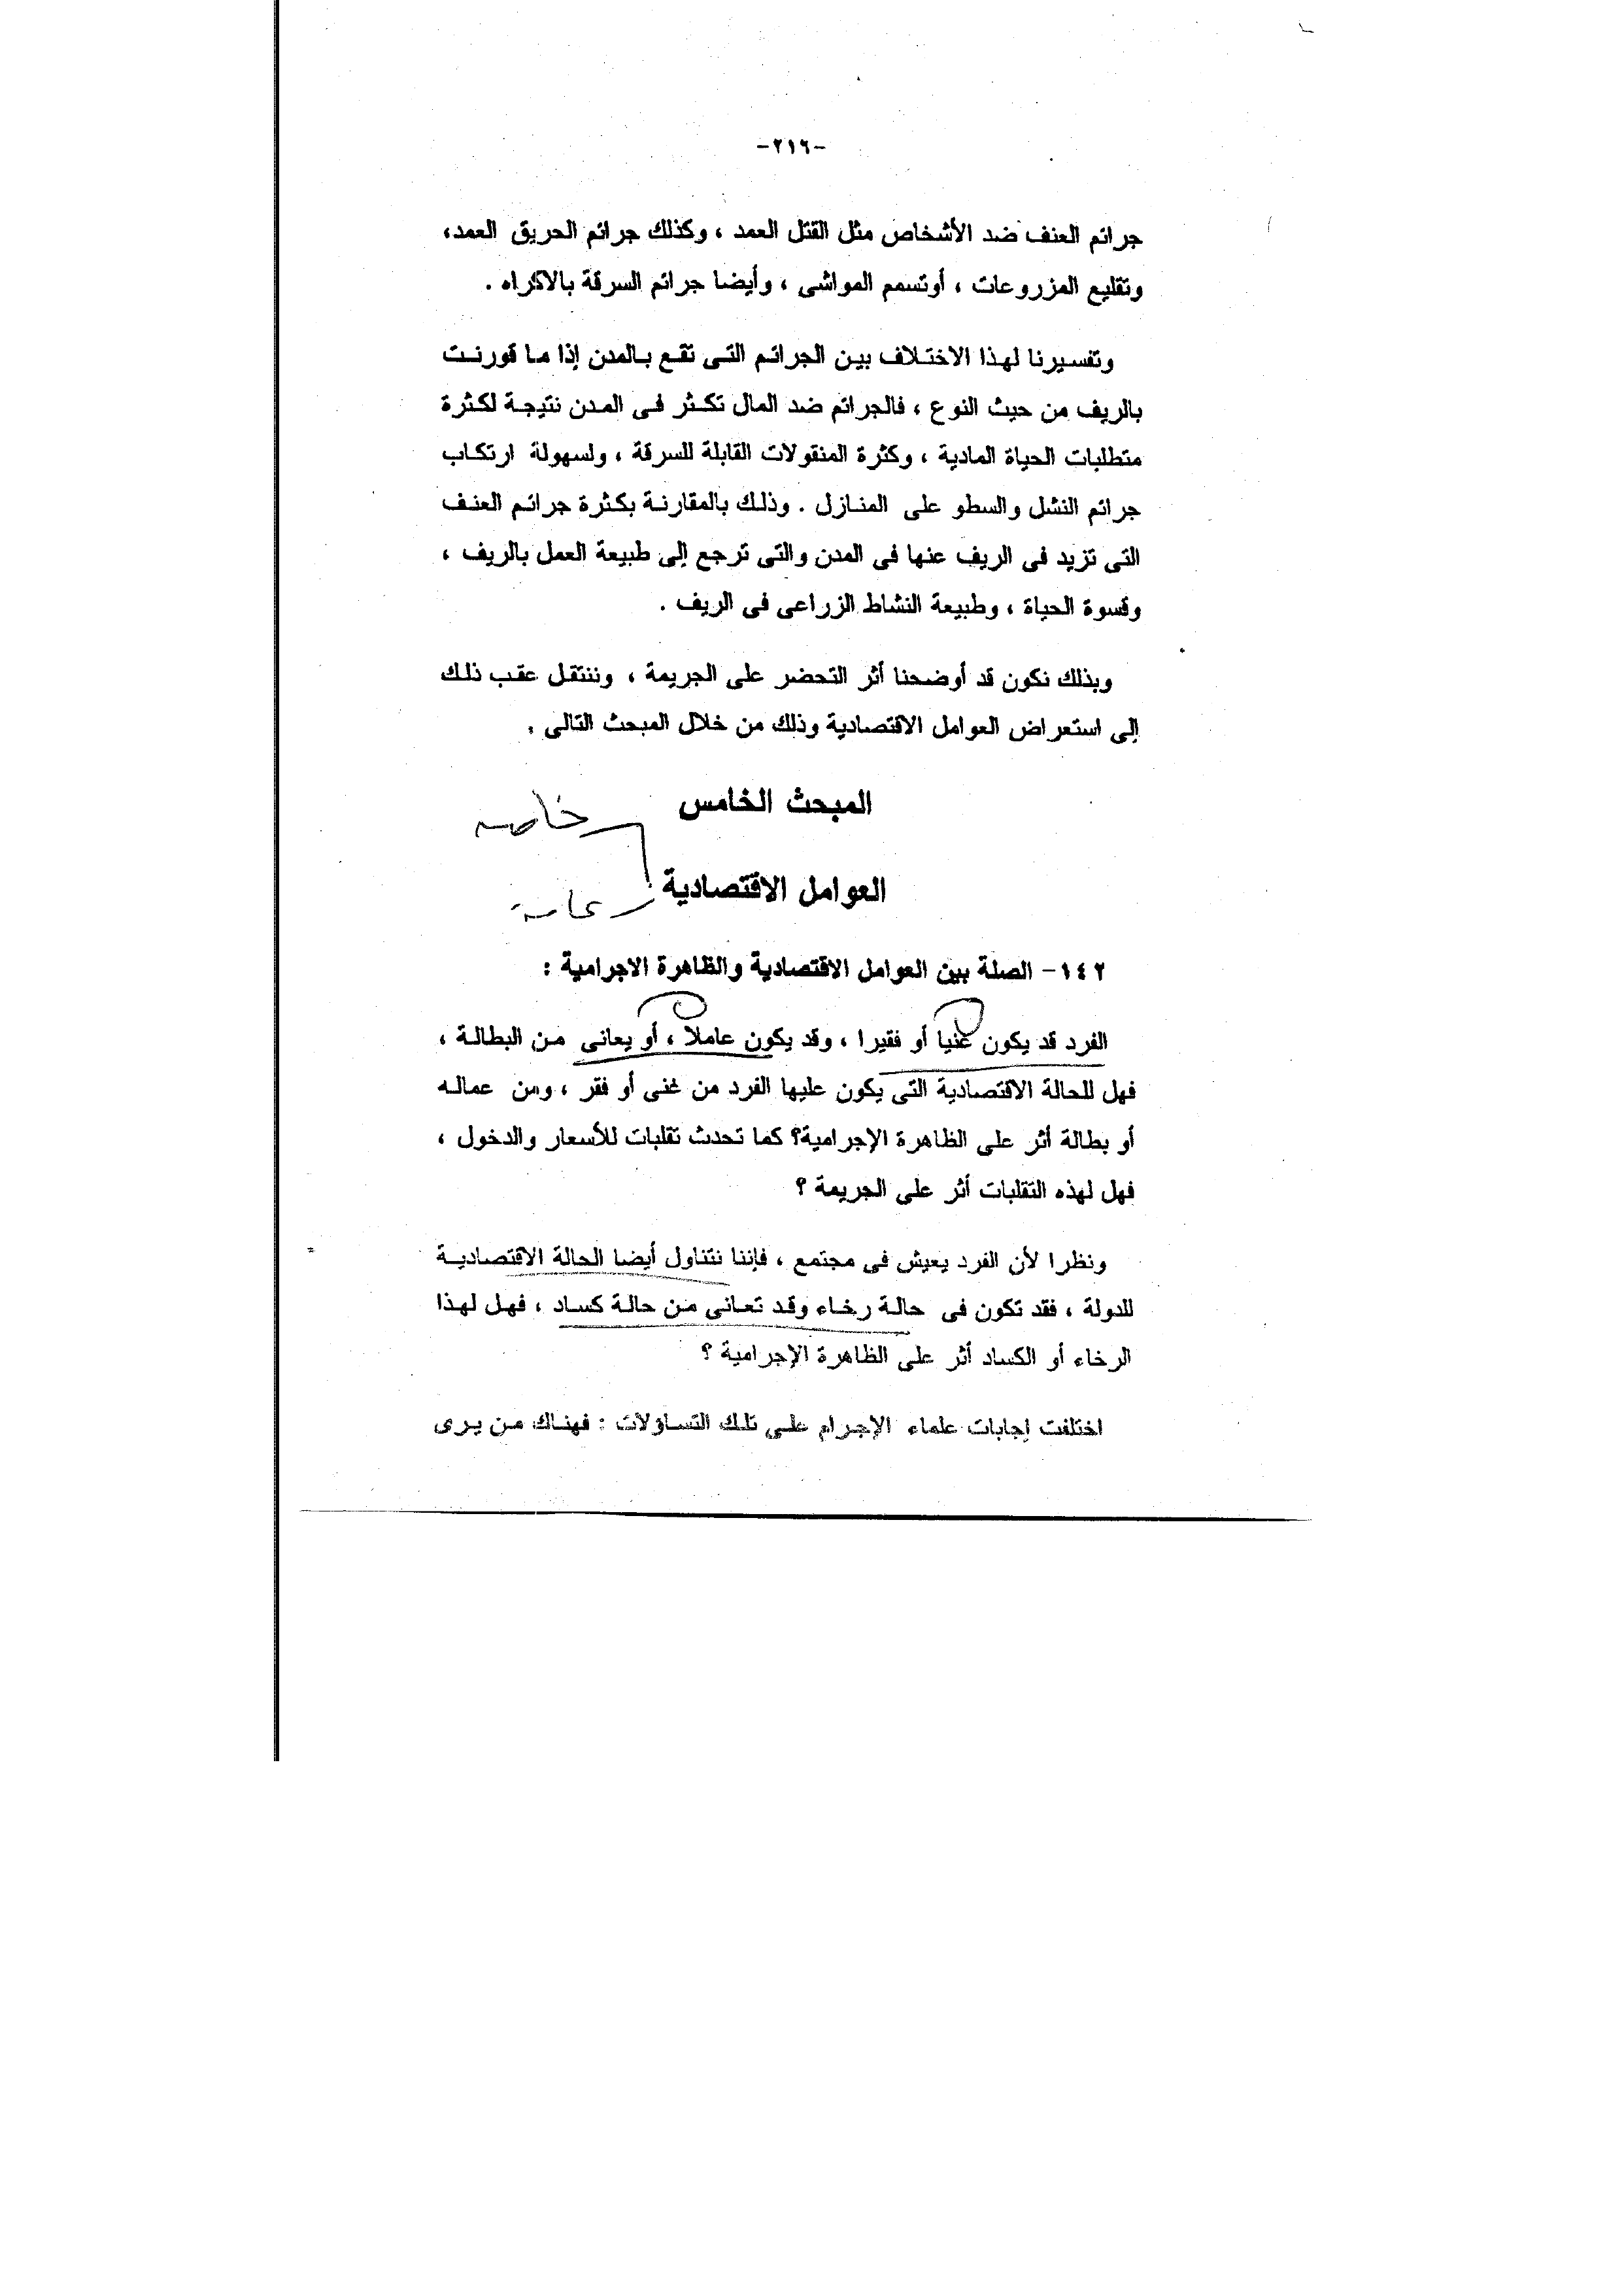 -٢١٦-
جرائم العنف ضد الأشخاص مثل القتل العمد ، وكذلك جرائم الحريق العمد،
وتقليع المزروعات ، أوتسمم المواشى ، وأيضا جرائم السرقة بالاكراه .
وتفسيرنا لهذا الاختلاف بين الجرائم التى تقع بالمدن إذا ما قورنت
بالريف من حيث النوع ، فالجرائم ضد المال تكثر فى المدن نتيجة لكثرة
متطلبات الحياة المادية ، وكثرة المنقولات القابلة للسرقة ، ولسهولة ارتكاب
جرائم النشل والسطو على المنازل . وذلك بالمقارنة بكثرة جرائم العنف
التى تزيد فى الريف عنها فى المدن والتى ترجع إلى طبيعة العمل بالريف ،
وقسوة الحياة ، وطبيعة النشاط الزراعى فى الريف .
وبذلك نكون قد أوضحنا أثر التحضر على الجريمة ، وننتقل عقب ذلك
إلى استعراض العوامل الاقتصادية وذلك من خلال المبحث التالى .
المبحث الخامس
خاصه
العوامل الاقتصادية
عامة
١٤٢- الصلة بين العوامل الاقتصادية والظاهرة الاجرامية :
الفرد قد يكون غنيا أو فقيرا ، وقد يكون عاملا ، أو يعانى من البطالة ،
فهل للحالة الاقتصادية التى يكون عليها الفرد من غنى أو فقر ، ومن عماله
أو بطالة أثر على الظاهرة الإجرامية؟ كما تحدث تقلبات للأسعار والدخول ،
فهل لهذه التقلبات أثر على الجريمة ؟
ونظرا لأن الفرد يعيش فى مجتمع ، فإننا نتناول أيضا الحالة الاقتصادية
للدولة ، فقد تكون فى حالة رخاء وقد تعانى من حالة كساد ، فهل لهذا
الرخاء أو الكساد أثر على الظاهرة الإجرامية ؟
اختلفت إجابات علماء الإجرام على تلك التساؤلات : فهناك من يرى